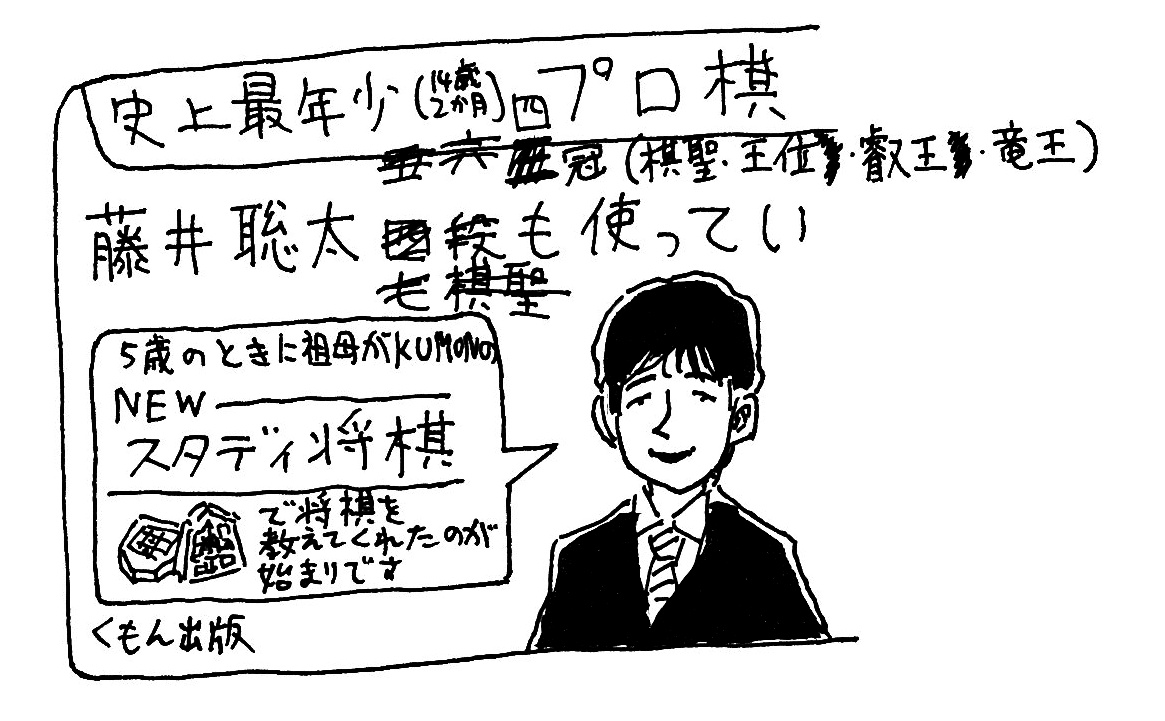 史上最年少(14歳2か月)四プロ棋
冠(棋聖・王位・叡王・竜王)
藤井聡太四段も使ってい
七棋聖
5歳のときに祖母がKUMONの
NEW
スタディ将棋
で将棋を
教えてくれたのが
始まりです
くもん出版